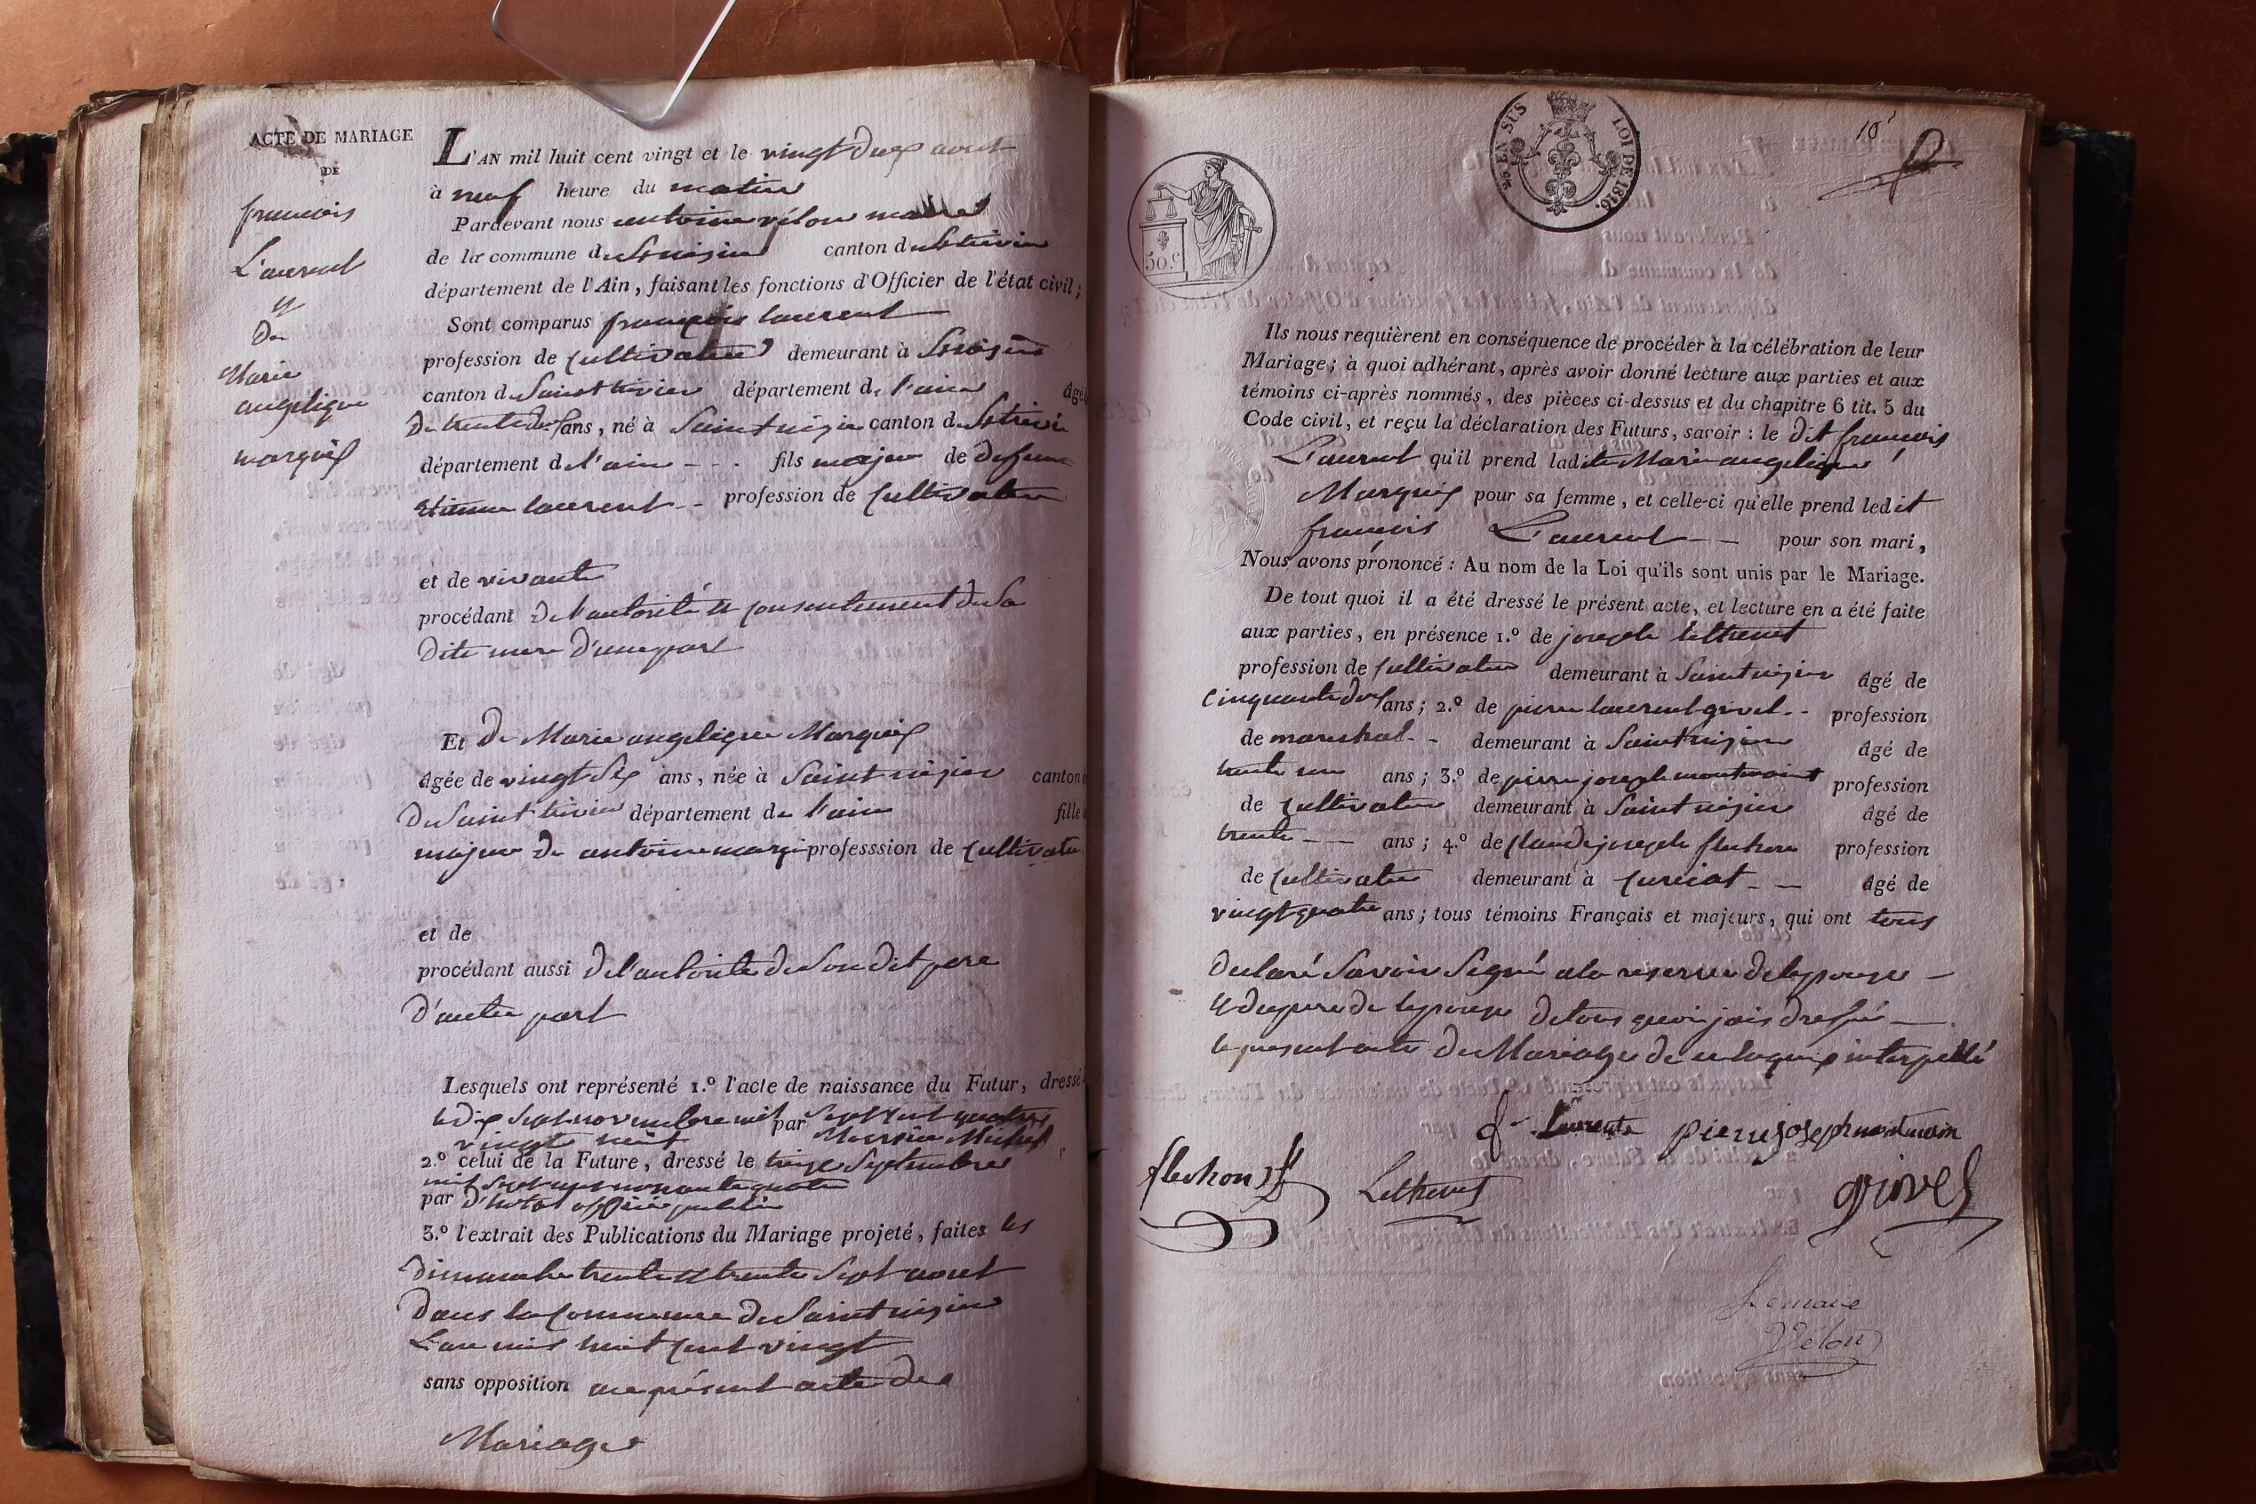 ACTE DE MARIAGE
DE
francois
Laurent
et
De
Marie
angelique
marquis
L'AN mil huit cent vingt et le vingt deux aout
à neuf heure du matin
Pardevant nous antoine vélon maire
de la commune de canton de St trivier
département de l'Ain, faisant les fonctions d'Officier de l'état civil;
Sont comparus françois laurent
profession de cultivateur demeurant à St nisier
canton de Saint trivier département de l'ain âgé
De trente ans, né à Saint nizier canton de St trivié
département de l'ain - - - fils majeur de defunt
etienne laurent - - profession de cultivateur
et de vivante
procédant de l'autorité et consentement de sa
dite mere d'une part
Et de Marie angelique Marquis
âgée de vingt six ans, née à Saint nizier canton
de Saint trivier département de l'ain fille
majeur de antoine marqi professsion de cultivateur
et de
procédant aussi de l'autorite de son dit pere
d'autre part
Lesquels ont représenté 1.º l'acte de naissance du Futur, dressé
le dix sept novembre mil sept cent quatre
vingt neuf par Messire Michel
2.º celui de la Future, dressé le treize Septembre
mil sept cent nonante quatre
par officier public
3.º l'extrait des Publications du Mariage projeté, faites les
dimanche trente et trente sept aout
dans la commune de Saint nizier
L'an mil huit cent vingt
sans opposition au présent acte de
Mariage
50.c
EN SUS
LOI DE 1816.
10
Ils nous requièrent en conséquence de procéder à la célébration de leur
Mariage; à quoi adhérant, après avoir donné lecture aux parties et aux
témoins ci-après nommés, des pièces ci-dessus et du chapitre 6 tit. 5 du
Code civil, et reçu la déclaration des Futurs, savoir: le dit françois
Laurent qu'il prend ladite Marie angelique
Marquis pour sa femme, et celle-ci qu'elle prend ledit
françois Laurent - - pour son mari,
Nous avons prononcé: Au nom de la Loi qu'ils sont unis par le Mariage.
De tout quoi il a été dressé le présent acte, et lecture en a été faite
aux parties, en présence 1.º de joseph lethenet
profession de cultivateur demeurant à Saint nizier âgé de
cinquante deux ans; 2.º de pierre laurent grivel - - profession
de mareshal - - demeurant à Saint nizier âgé de
trente un ans; 3.º de pierre joseph profession
de cultivateur demeurant à Saint nizier âgé de
trente - - - ans; 4.º de claude joseph flechon profession
de cultivateur demeurant à curciat - - âgé de
vingt quatre ans; tous témoins Français et majeurs, qui ont tous
declaré Savoir Signé a la reserve de lepouse -
et du pere de lepouse de tous quoi jais dressé -
le present acte de Mariage de ce enquis interpellé
flechon
Lethenet
grivel
Le maire
Vélon